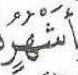 أَشْهُر